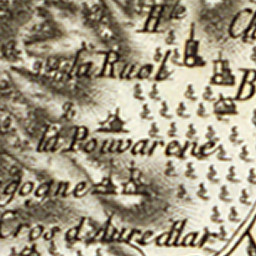 H.le
la Ruol
la Pouvarene
gogne
Cros d'Auredlar